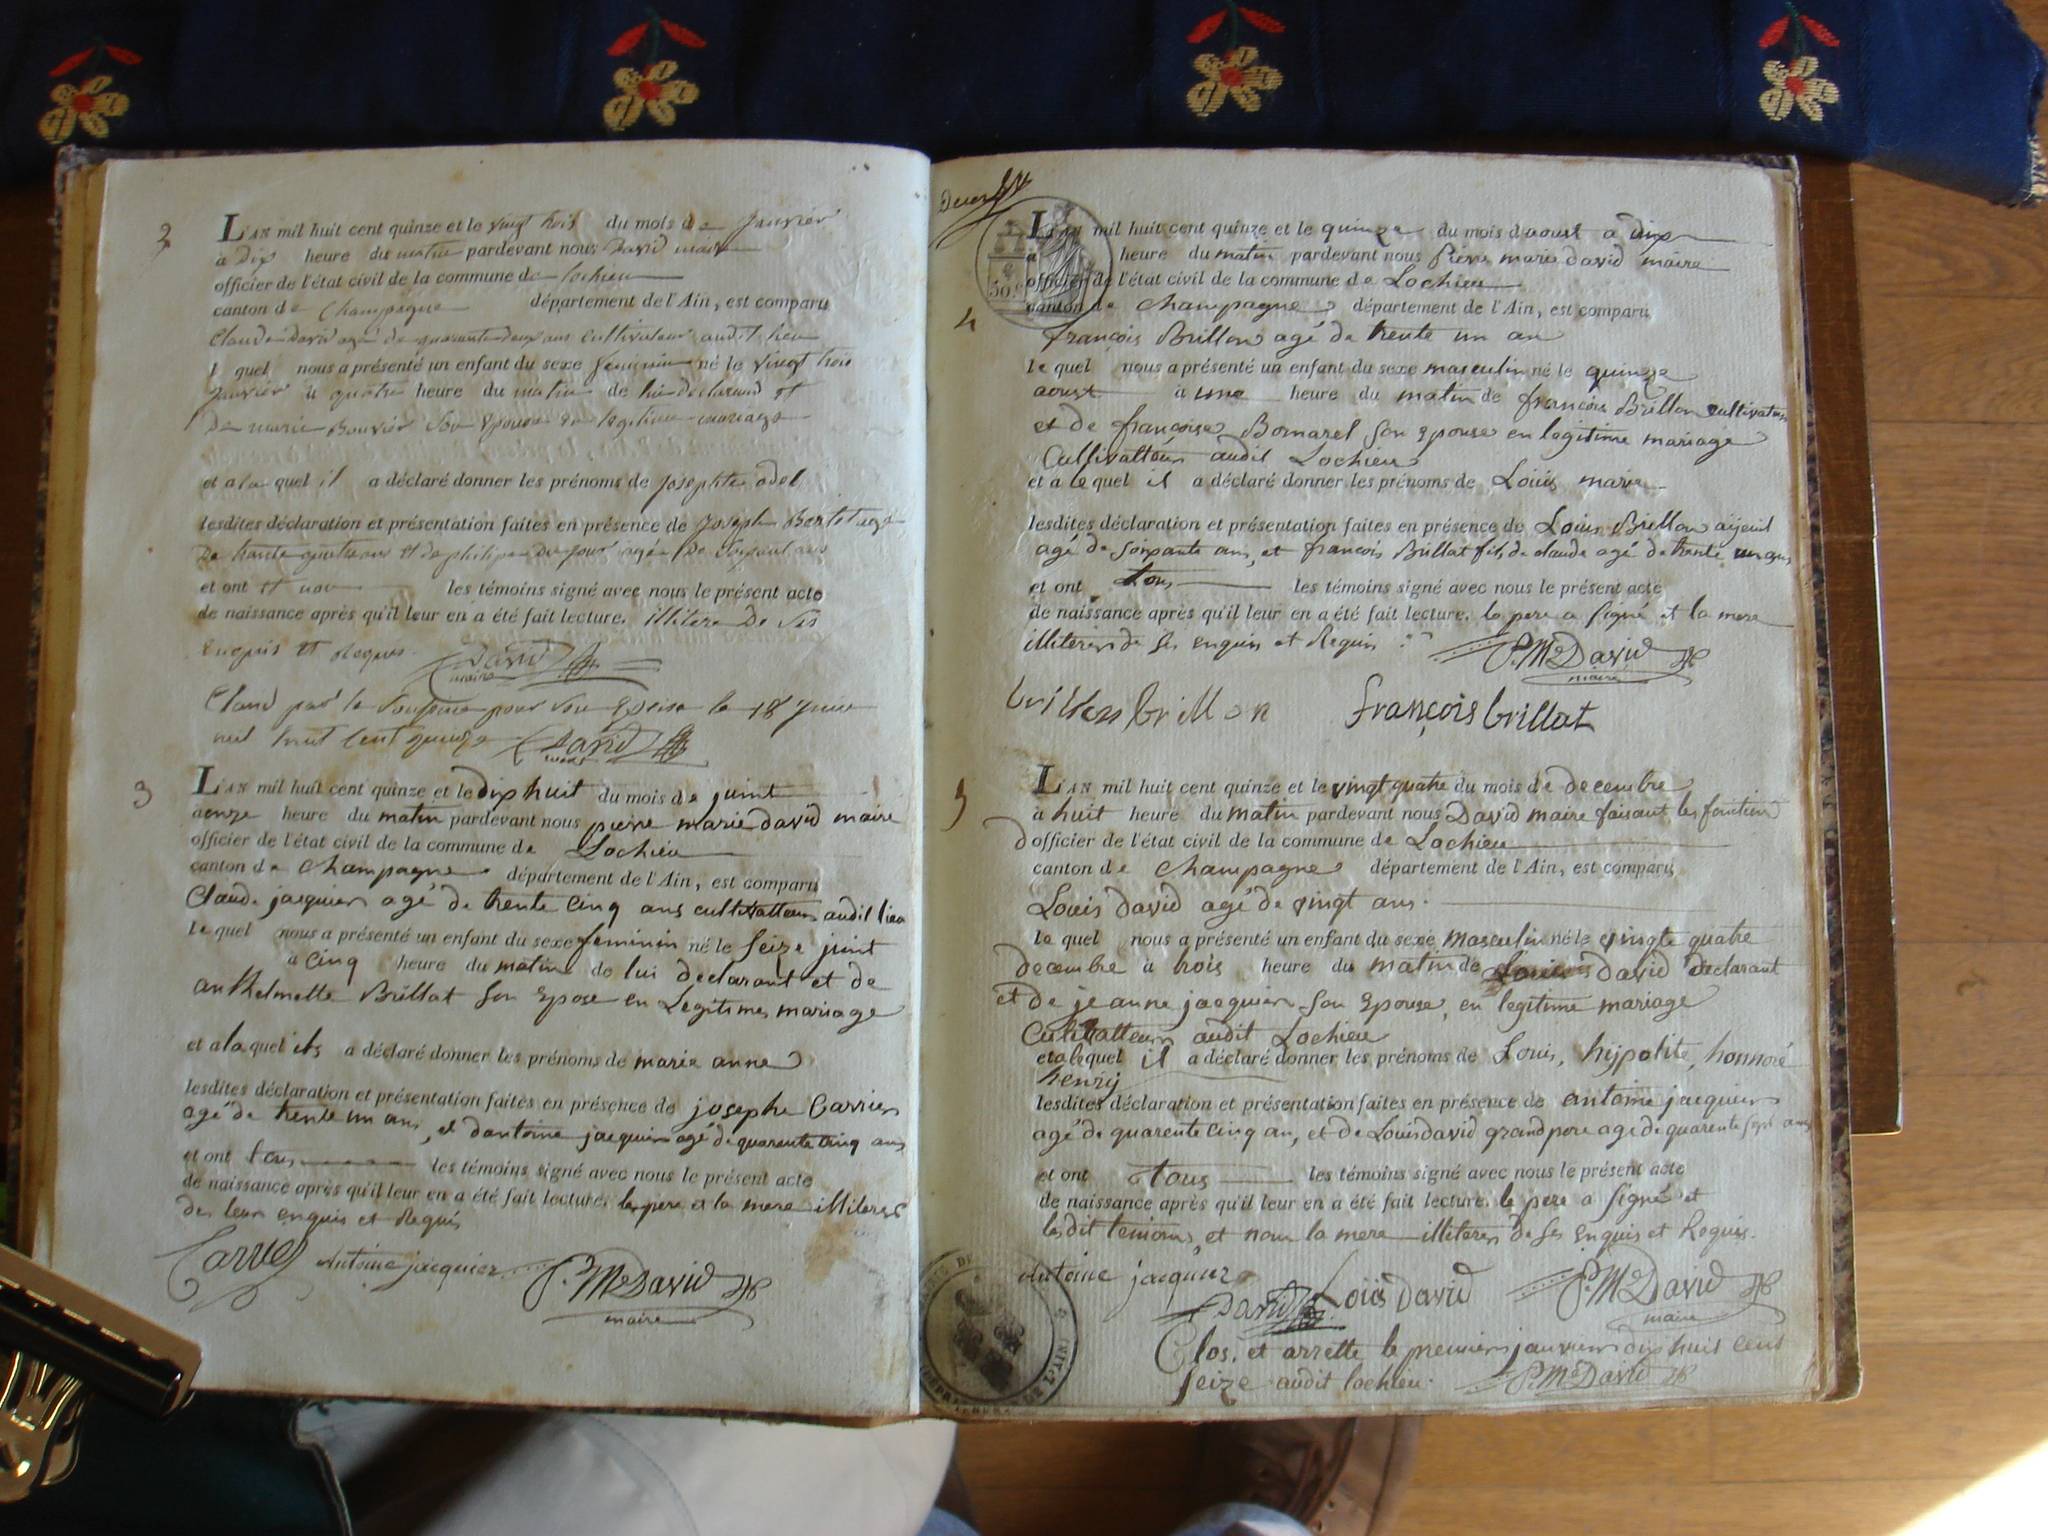 2
L'AN mil huit cent quinze et le vingt trois du mois de Janvier
a Dix heure du matin pardevant nous David maire
officier de l'état civil de la commune de Lochieu
canton de Champagne département de l'Ain, est comparu
Claude David agé de quarante deux ans cultivateur audit lieu
l quel nous a présenté un enfant du sexe feminin né le vingt trois
Janvier à quatre heure du matin de lui declarand et
De marie Bouvier son Epouse en legitime mariage
et a la quel il a déclaré donner les prénoms de Josephte adel
lesdites déclaration et présentation faites en présence de Joseph
De trante quatre ans et de philipe Dufour agée De
et ont et non les témoins signé avec nous le présent acte
de naissance après qu'il leur en a été fait lecture. illitere De Ses
Enquis et Requis. David
maire
par le pour le 18 Juin
mil huit Cent quinze David
maire
3
L'AN mil huit cent quinze et le dix huit du mois de juint
a onze heure du matin pardevant nous pierre marie david maire
officier de l'état civil de la commune de Lochieu
canton de Champagne département de l'Ain, est comparu
Claude jacquier agé de trente cinq ans cultivatteur audit lieu
le quel nous a présenté un enfant du sexe feminin né le Seize juint
à cinq heure du matin de lui declarant et de
anthelmette Brillat son Epose en Legitimes mariage
et a la quel ils a déclaré donner les prénoms de marie anne
lesdites déclaration et présentation faites en présence de josephe Carrier
agé de trente un ans, et dantoine jacquier agé de quarente cinq ans
et ont tous les témoins signé avec nous le présent acte
de naissance après qu'il leur en a été fait lecture. le pere et la mere illiteres
des leur enquis et Requis
Carrier Antoine jacquier P. Me David
maire
L'AN mil huit cent quinze et le quinze du mois d aoust a dix
a heure du matin pardevant nous Pierre marie david maire
officier de l'état civil de la commune de Lochieu
canton de Champagne département de l'Ain, est comparu
4
françois Brillon agé de trente un an
le quel nous a présenté un enfant du sexe masculin né le quinze
aoust à une heure du matin de françois Brillon cultivateur
et de françoise Bornarel son Epouse en legitime mariage
Cultivatteur audit Lochieu
et a le quel il a déclaré donner les prénoms de Louis marie
lesdites déclaration et présentation faites en présence de Louis Brillon aÿeuil
agé de soixante ans, et françois Brillat fils de claude agé de trente un ans
et ont tous les témoins signé avec nous le présent acte
de naissance après qu'il leur en a été fait lecture. le pere a signé et la mere
illiteres de ses enquis et Requis P. Me David
maire
brillon brillon françois brillat
5
L'AN mil huit cent quinze et le vingt quatre du mois de decembre
à huit heure du matin pardevant nous David maire faisant les fonction
d officier de l'état civil de la commune de Lochieu
canton de Champagne département de l'Ain, est comparu
Louis david agé de vingt ans.
le quel nous a présenté un enfant du sexe masculin né le vingte quatre
decembre à trois heure du matin de Louis david declarant
et de jeanne jacquier son Epouse, en legitime mariage
Cultivatteur audit Lochieu
et a le quel il a déclaré donner les prénoms de Louis, hÿpolite, honnoré
henrÿ
lesdites déclaration et présentation faites en présence de antoine jacquier
agé de quarente cinq an, et de Louis david grand pere age de quarente sept ans
et ont tous les témoins signé avec nous le présent acte
de naissance après qu'il leur en a été fait lecture. le pere a signé et
lesdit temions, et non la mere illiteres de ses Enquis et Requis.
Antoine jacquier Louis David P. Me David
David maire
Clos, et arrette le premier janvier dix huit cent
Seize audit lochieu. P. Me David